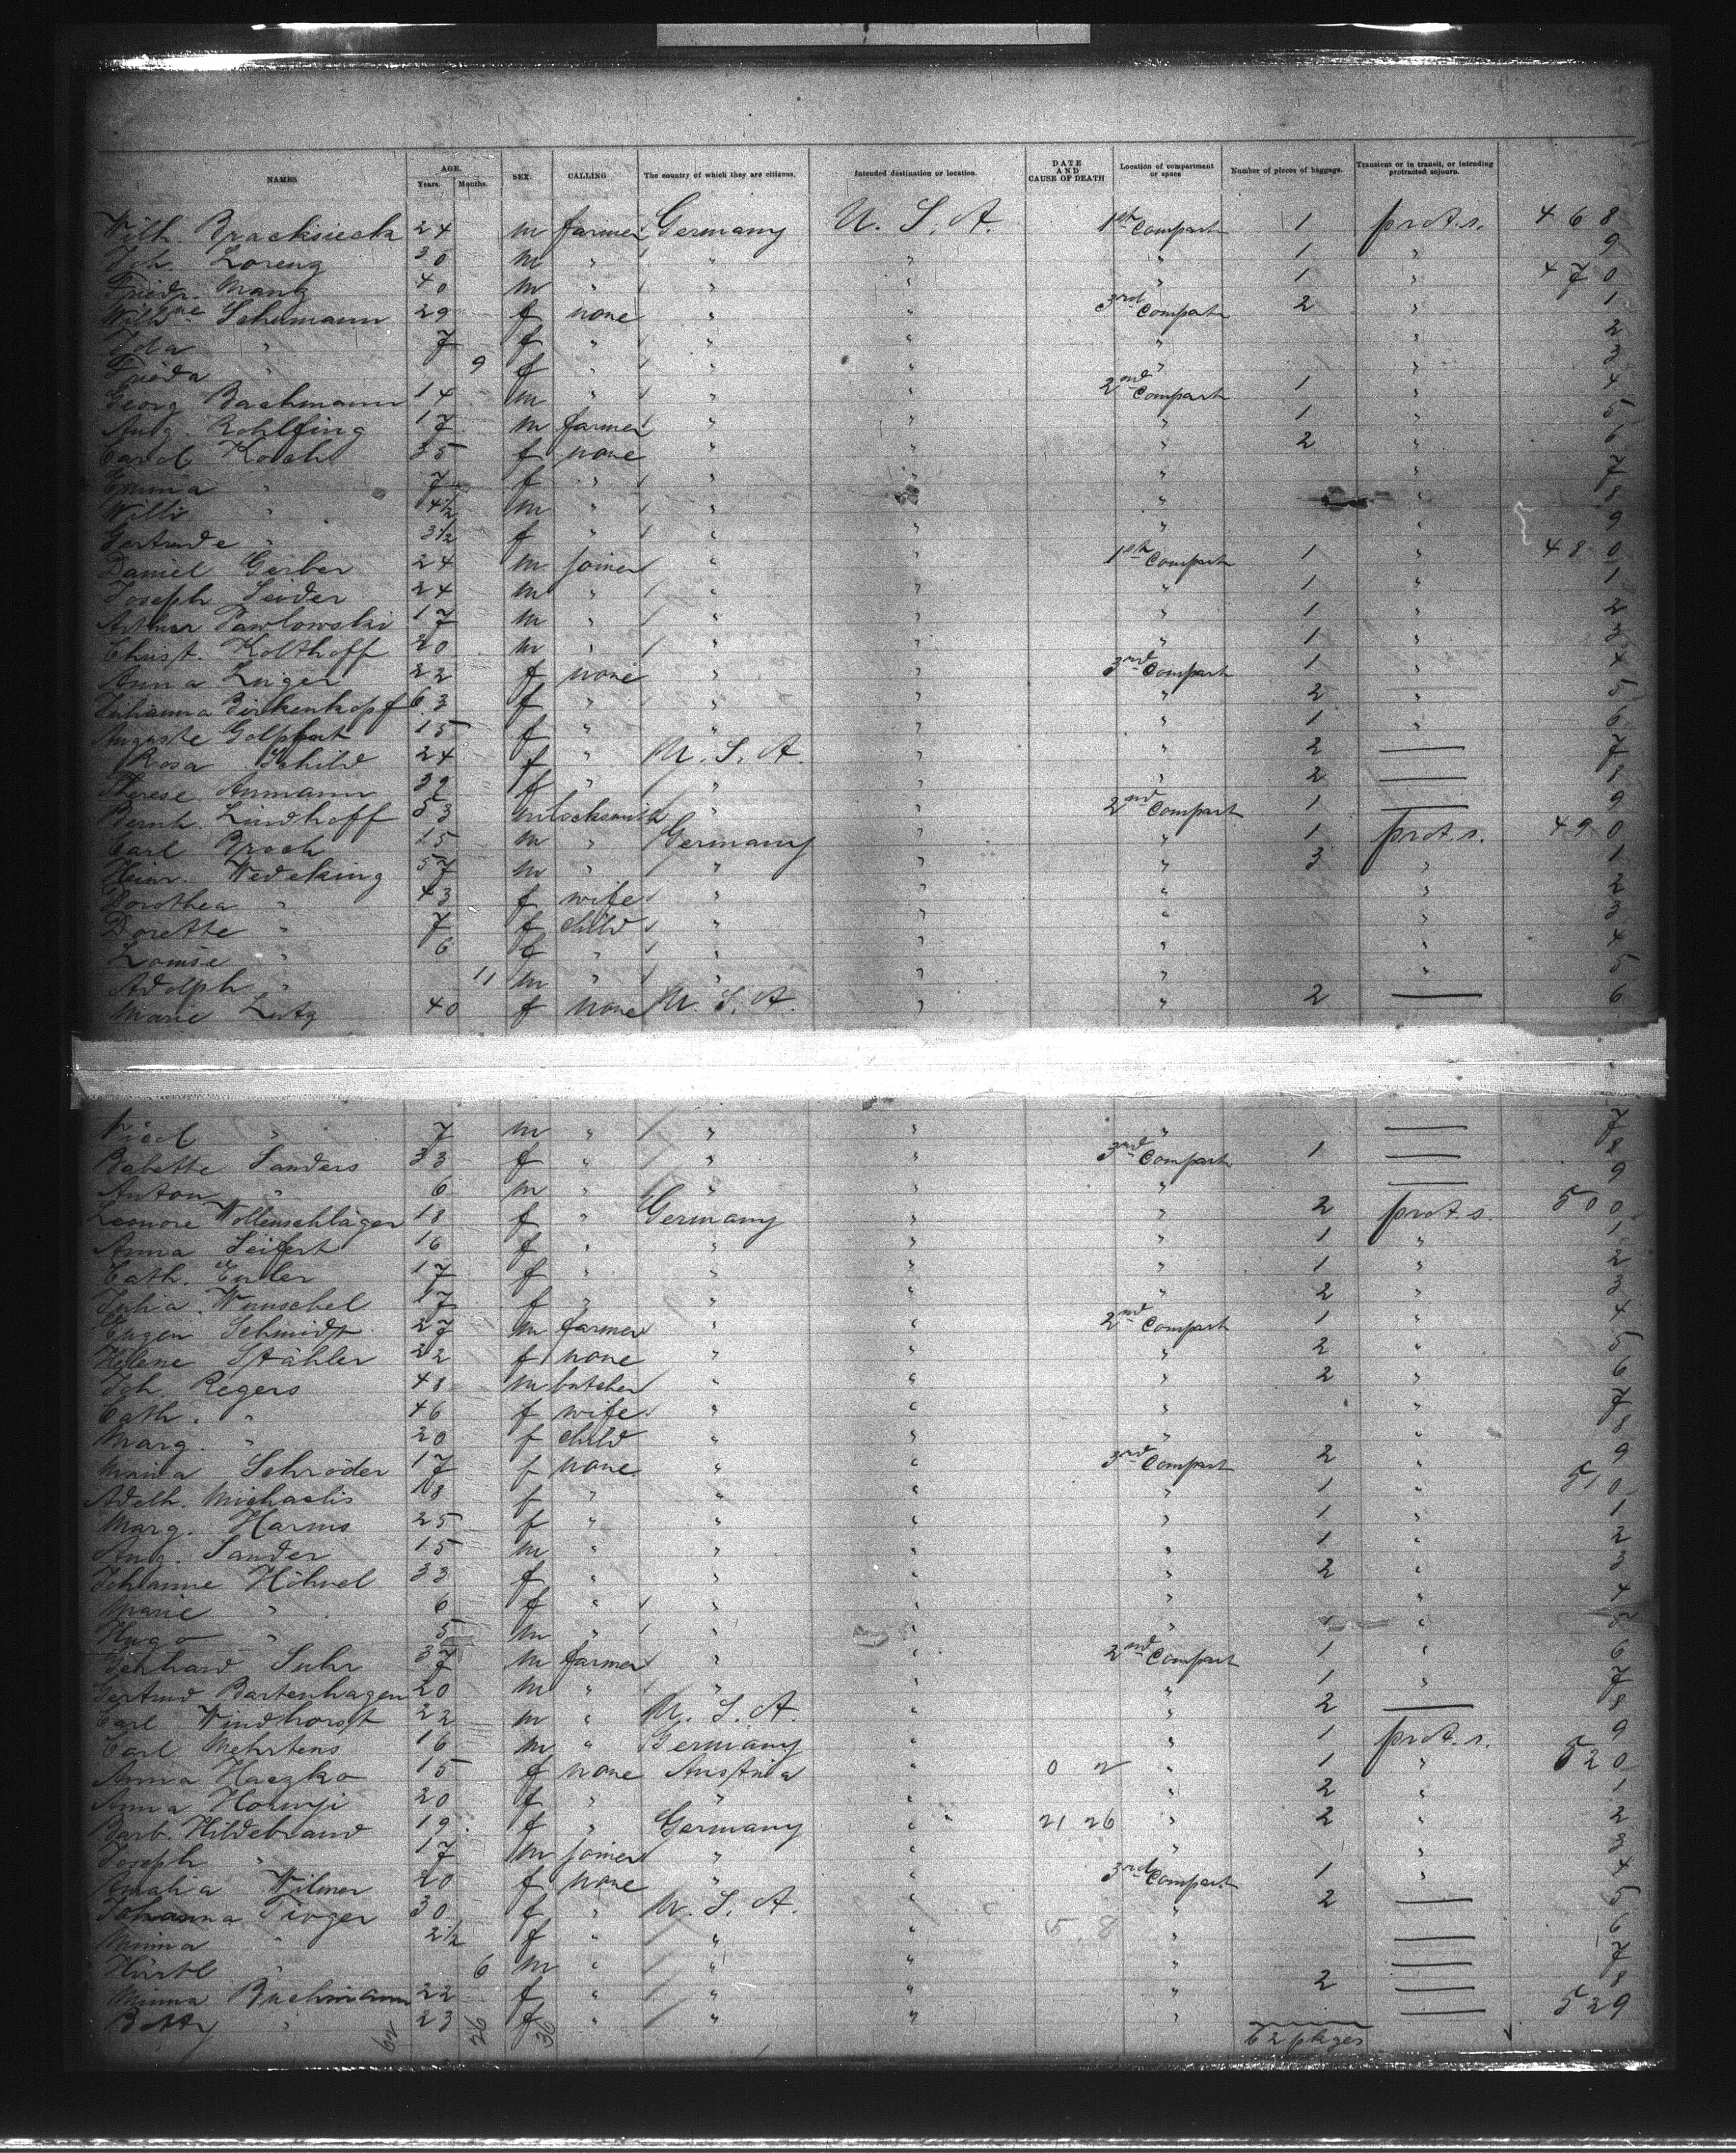 NAMES. AGE. Years. Months. SEX. CALLING The country of which they are citizens. Intended destination or location. DATE AND CAUSE OF DEATH Location of compartment or space Number of pieces of baggage. Transient or in transit, or intending protracted sojourn.
Wilh. Bracksieck 24 m farmer Germany U. S. A. 1st Compart 1 prot.s. 468
Joh. Lorenz 30 m " " " " 1 " 9
Friedr. Manz 40 m " " " " 1 " 470
Wilhne Schumann 29 f none " " 3rd Compart 2 " 1
Ida " 7 f " " " " " 2
Frieda " 9 f " " " " " 3
Georg Bachmann 14 m " " " 2nd Compart 1 " 4
Aug. Rohlfing 17 m farmer " " " 1 " 5
Carol Koch 35 f none " " " 2 " 6
Emma " 7 f " " " " " 7
Willi " 4½ m " " " " " 8
Gertrude " 3½ f " " " " " 9
Daniel Gerber 24 m joiner " " 1st Compart 1 " 480
Joseph Seider 24 m " " " " 1 " 1
Arthur Pawlowski 17 m " " " " 1 " 2
Christ. Kolthoff 20 m " " " " 1 " 3
Anna Luger 22 f none " " 3rd Compart 1 " 4
Johanna Birkenkopf 63 f " " " " 2 " 5
Auguste Golphert 15 f " " " " 1 " 6
Rosa Schild 24 f " U. S. A. " " 2 — 7
Therese Ammann 39 f " " " " 2 — 8
Bernh. Lindhoff 53 m locksmith " " 2nd Compart 1 — 9
Carl Broch 15 m " Germany " " 1 prot.s. 490
Heinr. Wedeking 57 m " " " " 3 " 1
Dorothea " 43 f wife " " " " 2
Dorette " 7 f child " " " " 3
Louise " 6 f " " " " " 4
Adolph " 11 m " " " " " 5
Marie Lutz 40 f none U. S. A. " " 2 — 6
" 7 m " " " " — 7
Babette Sanders 33 f " " " 3rd Compart 1 — 8
Anton " 6 m " " " " — 9
Leonore Wollenschläger 18 f " Germany " " 2 prot.s. 500
Anna Seifert 16 f " " " " 1 " 1
Cath. Euler 17 f " " " " 1 " 2
Julia Wunschel 17 f " " " " 2 " 3
Eugen Schmidt 27 m farmer " " 2nd Compart 1 " 4
Helene Stähler 22 f none " " " 2 " 5
Joh. Regers 48 m butcher " " " 2 " 6
Cath. " 46 f wife " " " " 7
Marg. " 20 f child " " " " 8
Minna Schröder 17 f none " " 3rd Compart 2 " 9
Adelh. Michaelis 18 f " " " " 1 " 510
Marg. Harms 25 f " " " " 1 " 1
Aug. Sander 15 m " " " " 1 " 2
Johanne Höhnel 33 f " " " " 2 " 3
Marie " 6 f " " " " " 4
Hugo " 5 m " " " " " 5
Gerhard Suhr 37 m farmer " " 2nd Compart 1 " 6
Gertrud Bartenhagen 20 m " " " " 1 " 7
Carl Windhorst 22 m " U. S. A. " " 2 — 8
Carl Mehrtens 16 m " Germany " " 1 prot.s. 9
Anna Haczko 15 f none Austria " " 1 " 520
Anna 20 f " " " " 2 " 1
Barb. Hildebrand 19 f " Germany " 21 26 " 2 " 2
Joseph " 17 m joiner " " " " 3
Amalia Wilmer 20 f none " " 3rd Compart 1 " 4
Johanna Tirger 30 f " U. S. A. " " 2 — 5
Minna " 2½ f " " " 5 8 " — 6
" 6 m " " " " — 7
Minna Buchmann 22 f " " " " 2 — 8
Betty " 23 f " " " " — 529
62 26 36 62 pkges